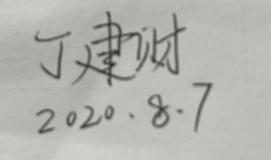 丁建财
2020.8.7